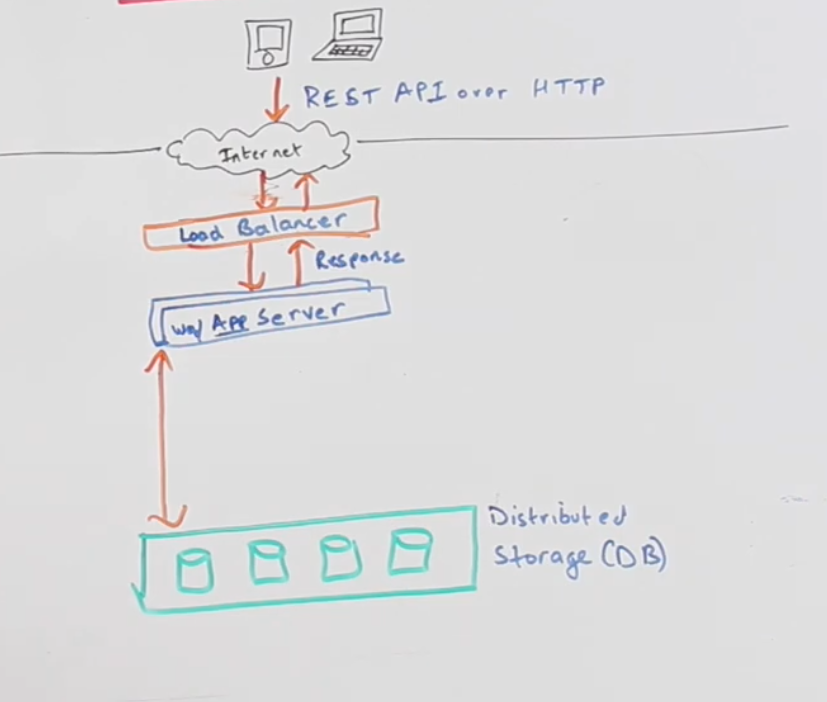 REST API over HTTP
Internet
Load Balancer
Response
App Server
Distributed
Storage (DB)